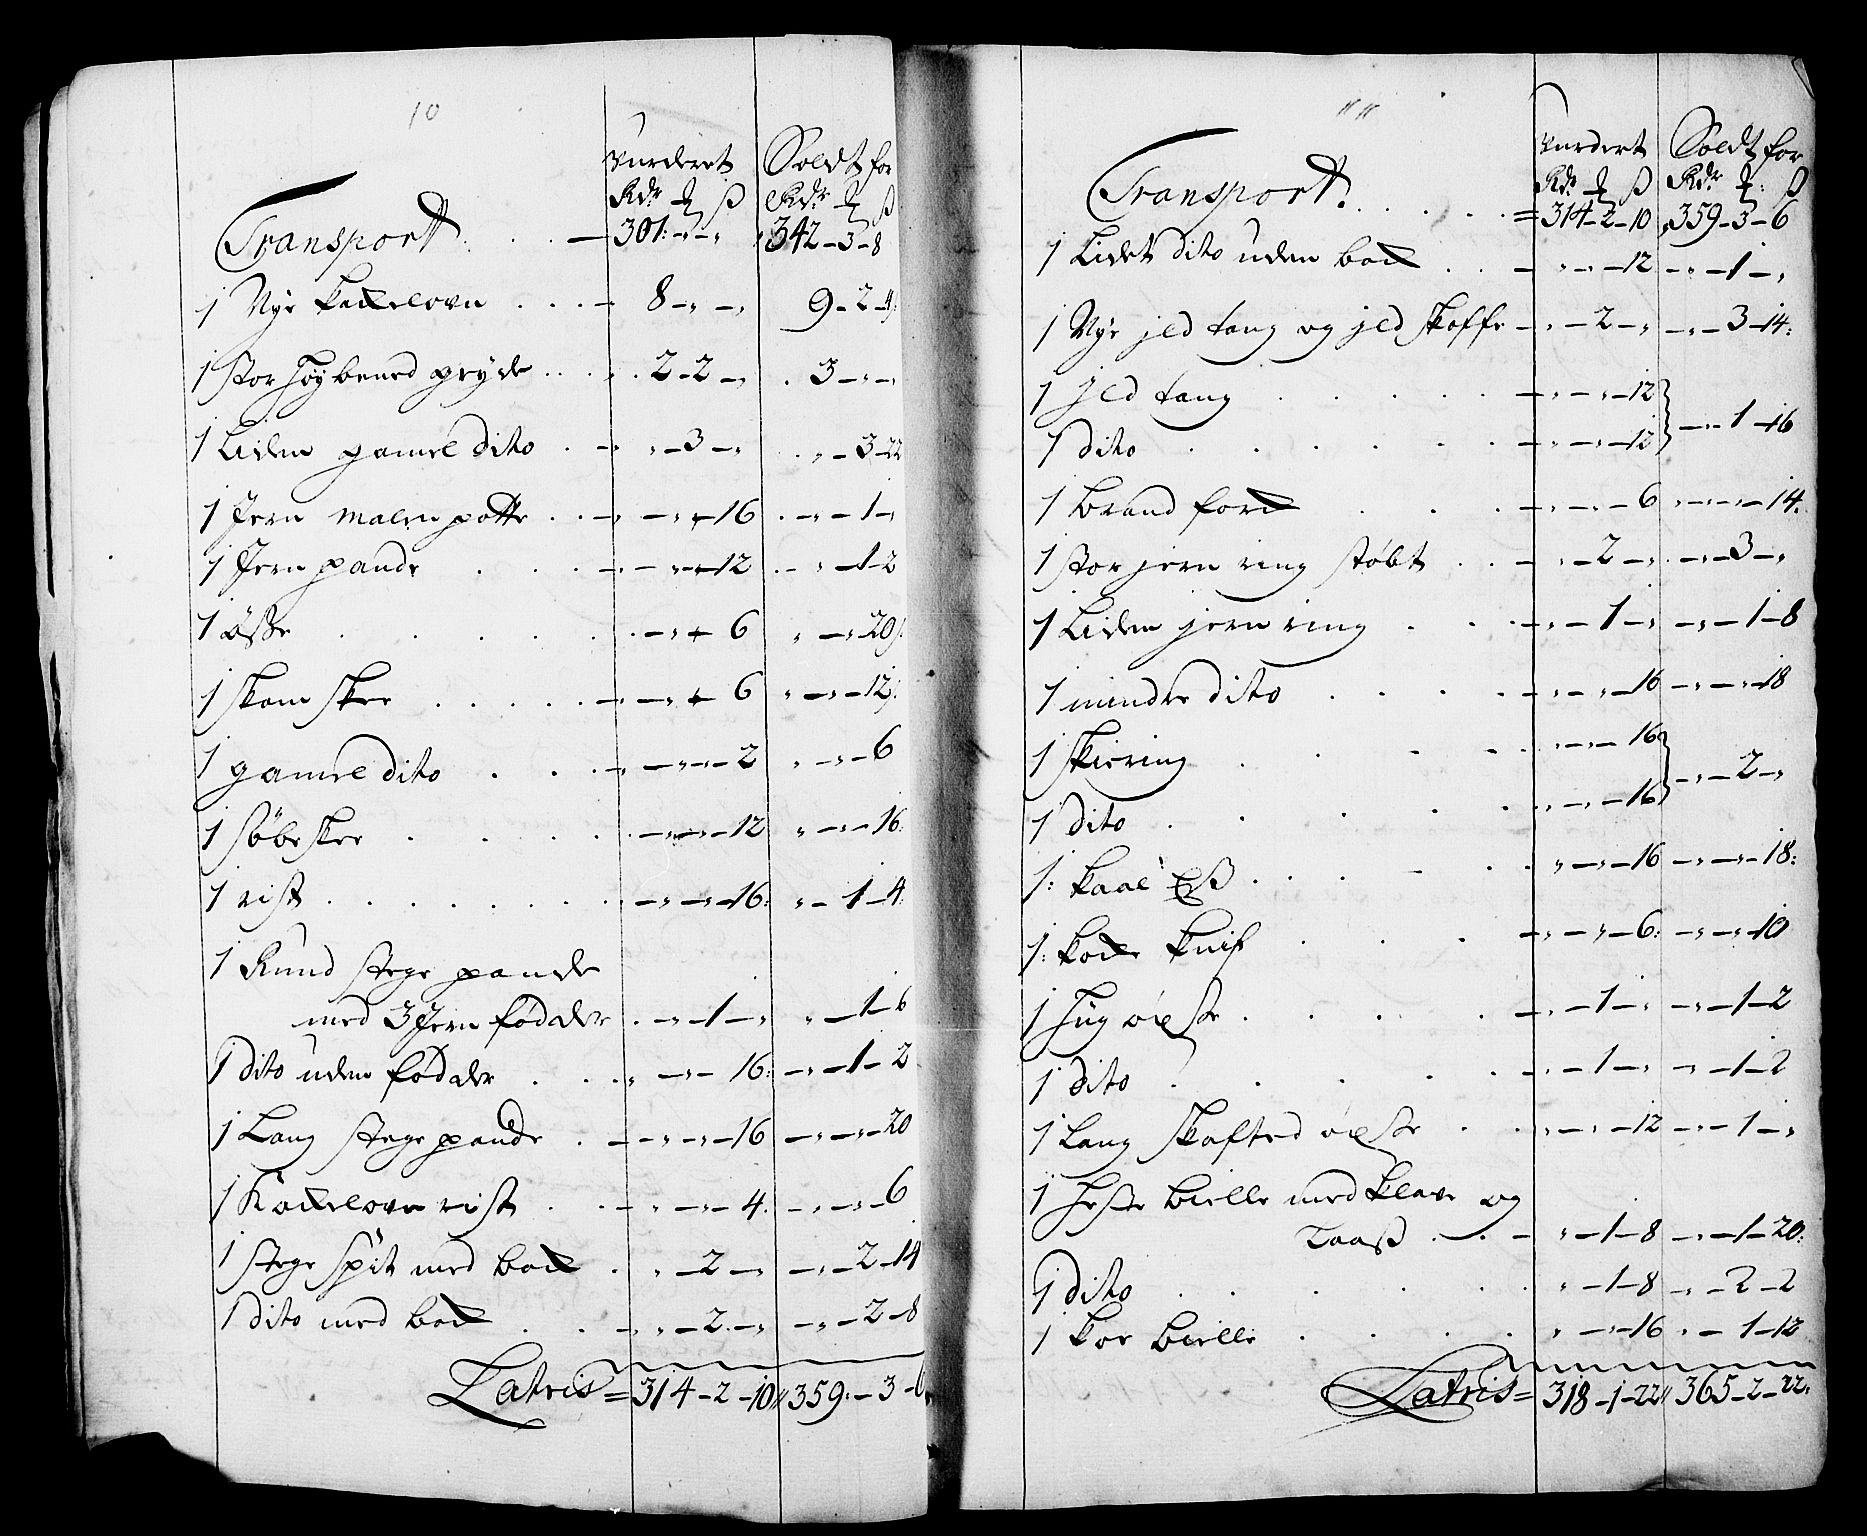 10
Vurderet Soldt for
Rdr ß Rdr ß
Transport. . . — 301: „ — „ 342 — 3 — 8
1 Nye Kackelovn . . . — 8 — „ — „ 9 — 2 — 4:
1 stor høybened gryde . . . 2 — 2 — „ 3 — „ — „
1 Liden gamel dito . — „ — 3 — „ „ — 3 — 22
1 Jern malm potte . . — „ — „ — 16 „ — 1 — „
1 Jern pande . . . — „ — „ — 12 „ — 1 — 2
1 øsse . . . . . — „ — 6 „ — „ — 20:
1 skom skee . . . . . — „ — „ — 6 „ — „ — 12:
1 gamel dito . . . — „ — „ — 2 „ — „ — 6
1 søbeskee . . . . — „ — „ — 12 „ — „ — 16:
1 rist . . . . . . . — „ — „ — 16: „ — 1 — 4:
1 Rund stege pande
med 3 Jern fødder . — „ — 1 — „ „ — 1 — 6
1 dito uden fødder . . . „ — „ — 16: — „ — 1 — 2
1 Lang stege pande . — „ — „ — 16 — „ — „ — 20
1 Kackelovn rist . . — „ — „ — 4. — „ — „ — 6
1 stege spit med bock . „ — 2 — „ — „ — 2 — 14
1 dito med bock . . — „ — 2 — „ — „ — 2 — 8
Latris = 314 — 2 — 10 „ 359: — 3 — 6
11
Vurdert Soldt for
Rdr ß Rdr ß
Transport. . . . . . = 314 — 2 — 10 „ 359 — 3 — 6
1 Lidet dito uden bock . . — „ — „ — 12 — „ — 1 — „
1 Nye jld tang og jld skoffe — „ — 2 — „ — „ — 3 — 14:
1 Jld tang . . . . . — „ — „ — 12
1 dito . . . . . — „ — „ — 12 } — „ — 1 — 16
1 brand fork . . . — „ — „ — 6 „ — „ — „ — 14.
1 stor jern ring støbt . . — „ — 2 — „ — „ — 3 — „
1 Liden jern ring . . . — „ — 1 — „ — „ — 1 — 8
1 mindre dito . . . . — „ — „ — 16 — „ — „ — 18
1 skiering . . . . „ — „ — 16
1 dito . . . . . „ — „ — 16 } — „ — 2 — „
1: kaal . . . . . . „ — „ — 16 — „ — „ — 18:
1: kocke knif . . . — „ — „ — 6: — „ — „ — 10
1 hug øxste . . . . — „ — 1 — „ — „ — 1 — 2
1 dito . . . . . — „ — 1 — „ — „ — 1 — 2
1 Lang skafted øxste . . „ — „ — 12 — „ — 1 — „
1 heste bielle med klave og
Laaß . . — „ — 1 — 8 — „ — 1 — 20:
1 dito . . . . . „ — 1 — 8 — „ — 2 — 2
1 koe bielle . . . . „ — „ — 16 „ — 1 — 12
Latris = 318 — 1 — 22 „ 365 — 2 — 22.